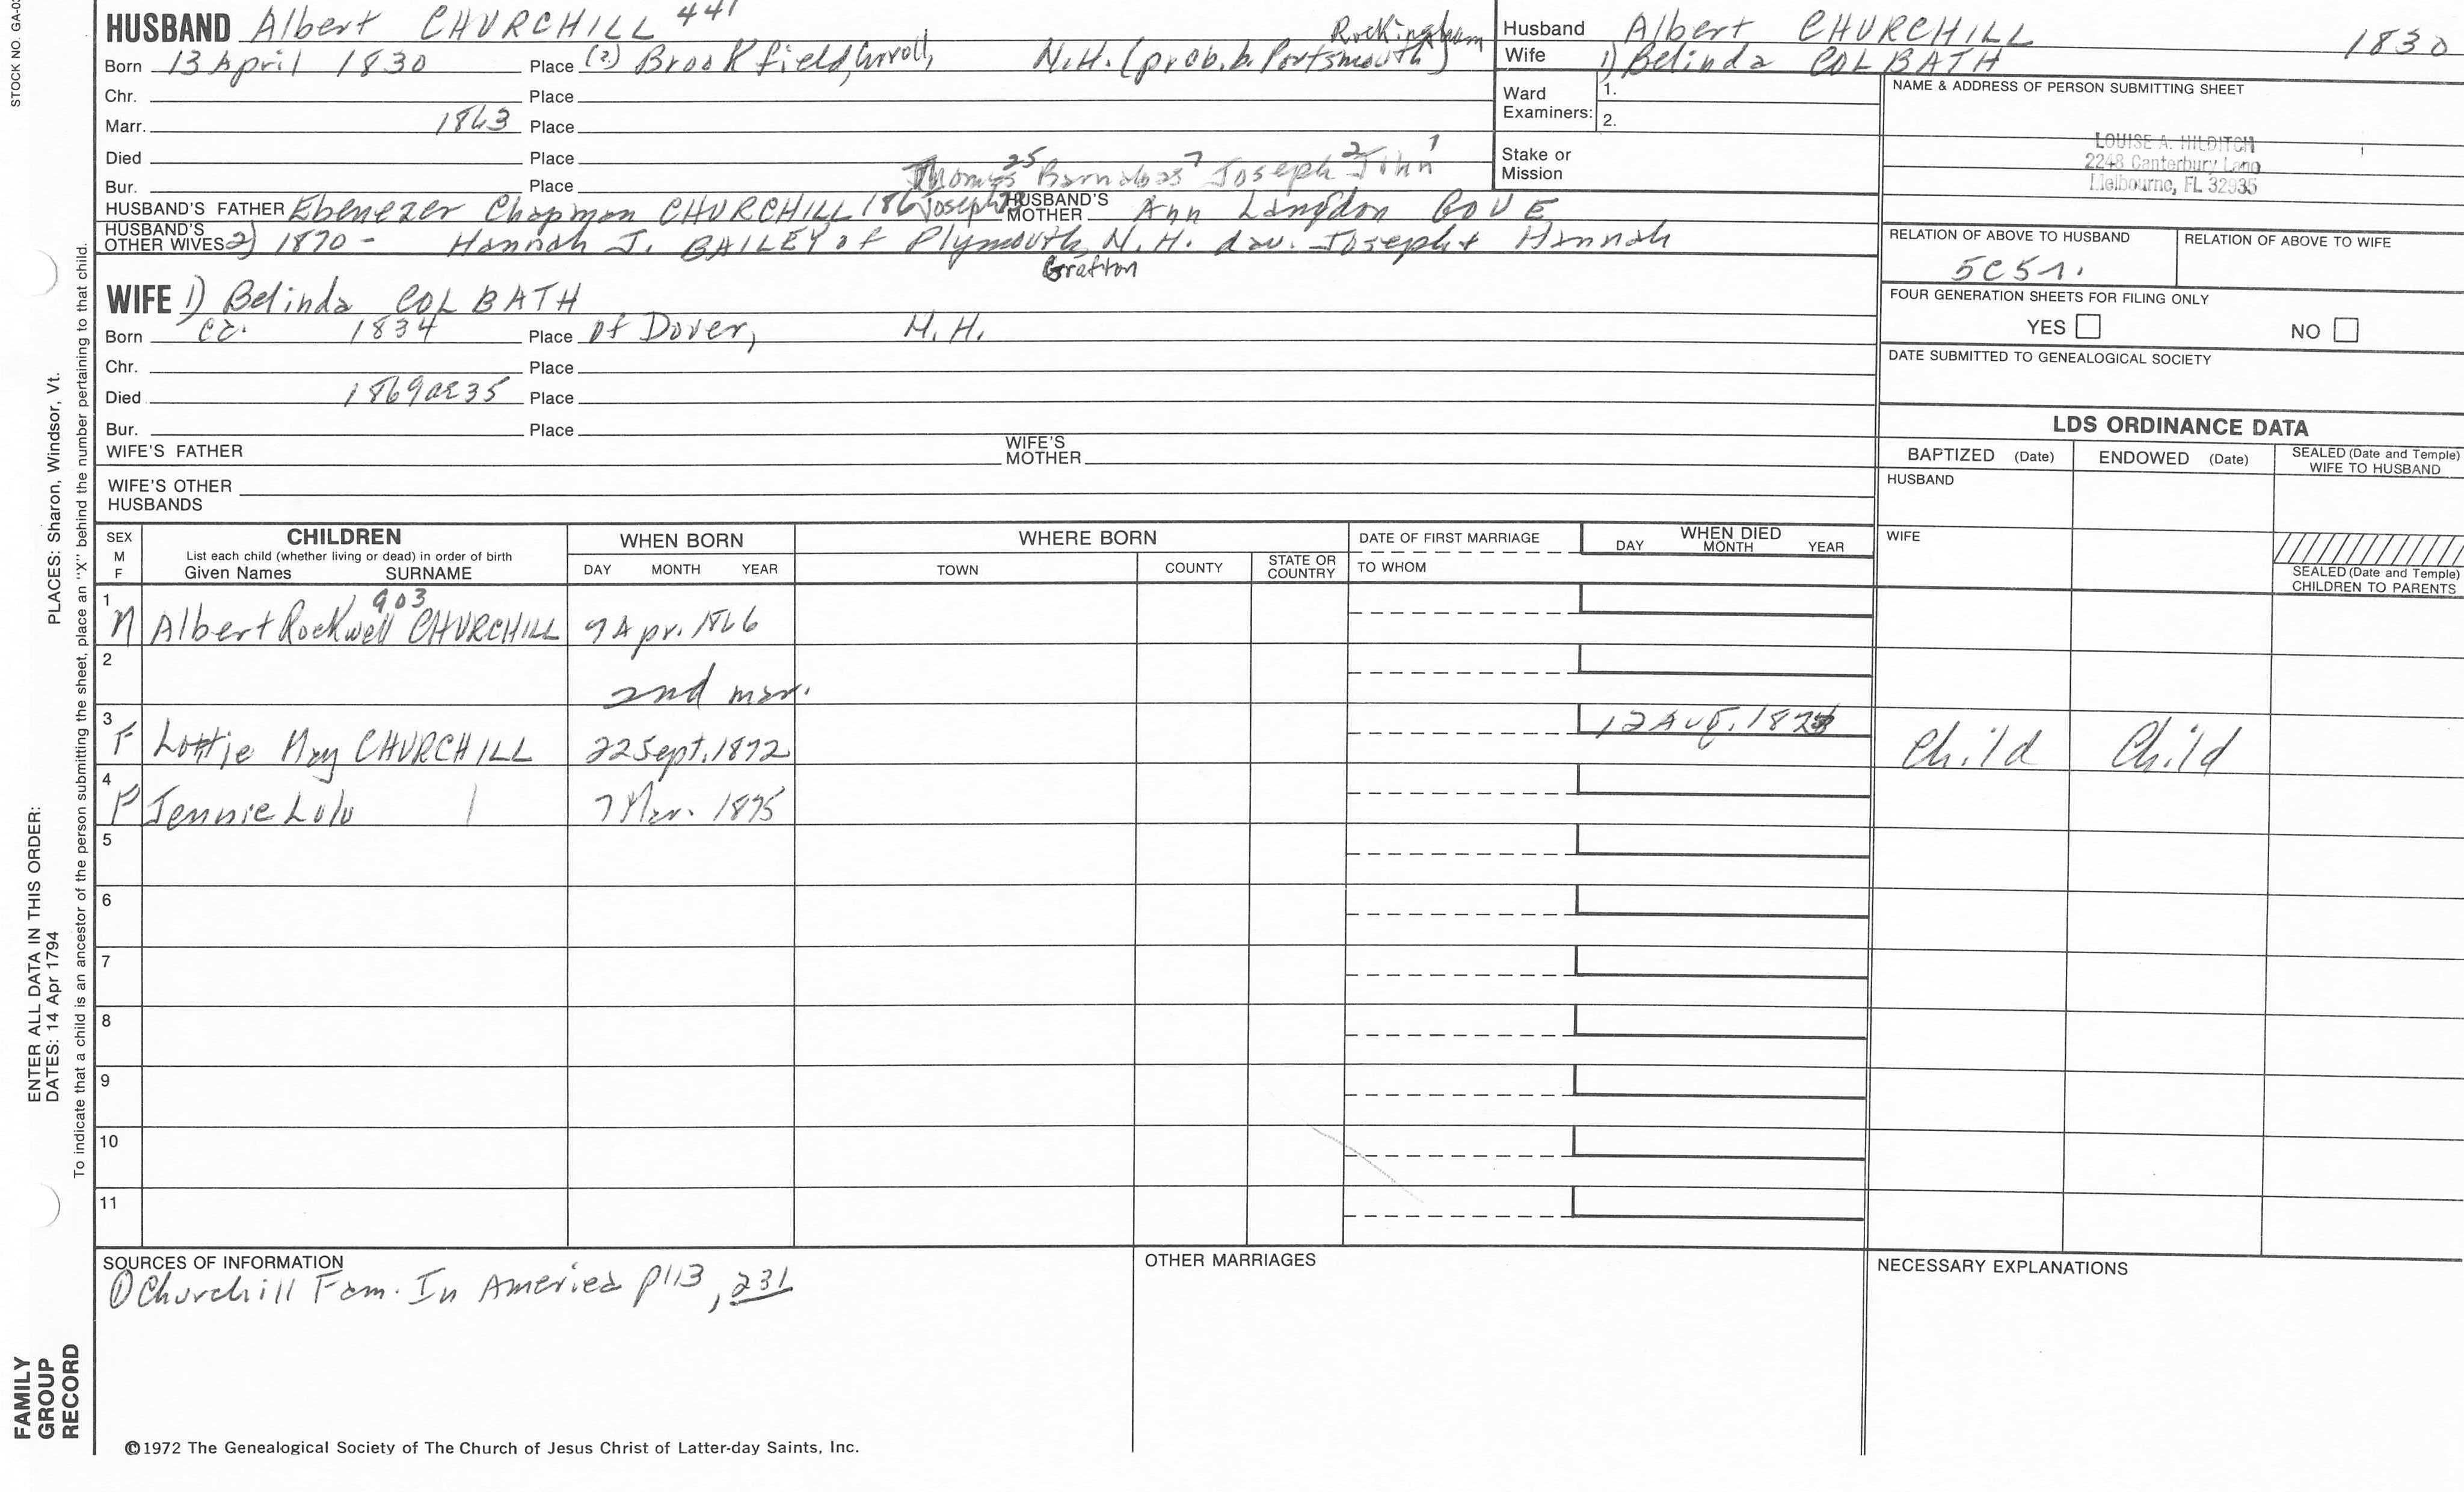 STOCK NO. GA-0
HUSBAND Albert CHURCHILL 441
Born 13 April 1830 Place (?) Brookfield, Carroll, N.H. (prob. b. Portsmouth) Rockingham
Chr. Place
Marr. 1863 Place
Died Place
Bur. Place Thomas 25 Barnabas 7 Joseph 2 John 1
HUSBAND'S FATHER Ebenezer Chapman CHURCHILL 186 Joseph 78 HUSBAND'S MOTHER Ann Langdon GOVE
HUSBAND'S OTHER WIVES 2) 1870 - Hannah J. BAILEY of Plymouth, N.H. dau. Joseph + Hannah
Grafton
WIFE 1) Belinda COLBATH
Born ca. 1834 Place of Dover, N.H.
Chr. Place
Died 1869 ae 35 Place
Bur. Place
WIFE'S FATHER WIFE'S MOTHER
WIFE'S OTHER HUSBANDS
Husband Albert CHURCHILL 1830
Wife 1) Belinda COLBATH
Ward Examiners: 1.
2.
Stake or Mission
NAME & ADDRESS OF PERSON SUBMITTING SHEET
LOUISE A. HILDITCH
2248 Canterbury Lane
Melbourne, FL 32935
RELATION OF ABOVE TO HUSBAND RELATION OF ABOVE TO WIFE
5C51.
FOUR GENERATION SHEETS FOR FILING ONLY
YES NO
DATE SUBMITTED TO GENEALOGICAL SOCIETY
LDS ORDINANCE DATA
BAPTIZED (Date) ENDOWED (Date) SEALED (Date and Temple) WIFE TO HUSBAND
HUSBAND
WIFE
SEALED (Date and Temple) CHILDREN TO PARENTS
SEX M F
CHILDREN
List each child (whether living or dead) in order of birth
Given Names SURNAME
WHEN BORN
DAY MONTH YEAR
WHERE BORN
TOWN COUNTY STATE OR COUNTRY
DATE OF FIRST MARRIAGE
TO WHOM
WHEN DIED
DAY MONTH YEAR
1 M Albert Rockwell CHURCHILL 903 9 Apr. 1866
2 2nd mar.
3 F Lottie May CHURCHILL 22 Sept. 1872 12 Aug. Child Child
4 F Jennie Lulu 7 Mar. 1875
5
6
7
8
9
10
11
SOURCES OF INFORMATION
① Churchill Fam. In America p113, 231
OTHER MARRIAGES
NECESSARY EXPLANATIONS
©1972 The Genealogical Society of The Church of Jesus Christ of Latter-day Saints, Inc.
FAMILY GROUP RECORD
ENTER ALL DATA IN THIS ORDER:
DATES: 14 Apr 1794
PLACES: Sharon, Windsor, Vt.
To indicate that a child is an ancestor of the person submitting the sheet, place an "X" behind the number pertaining to that child.